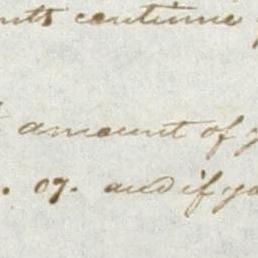 continue
amount of
. 07. and if yo